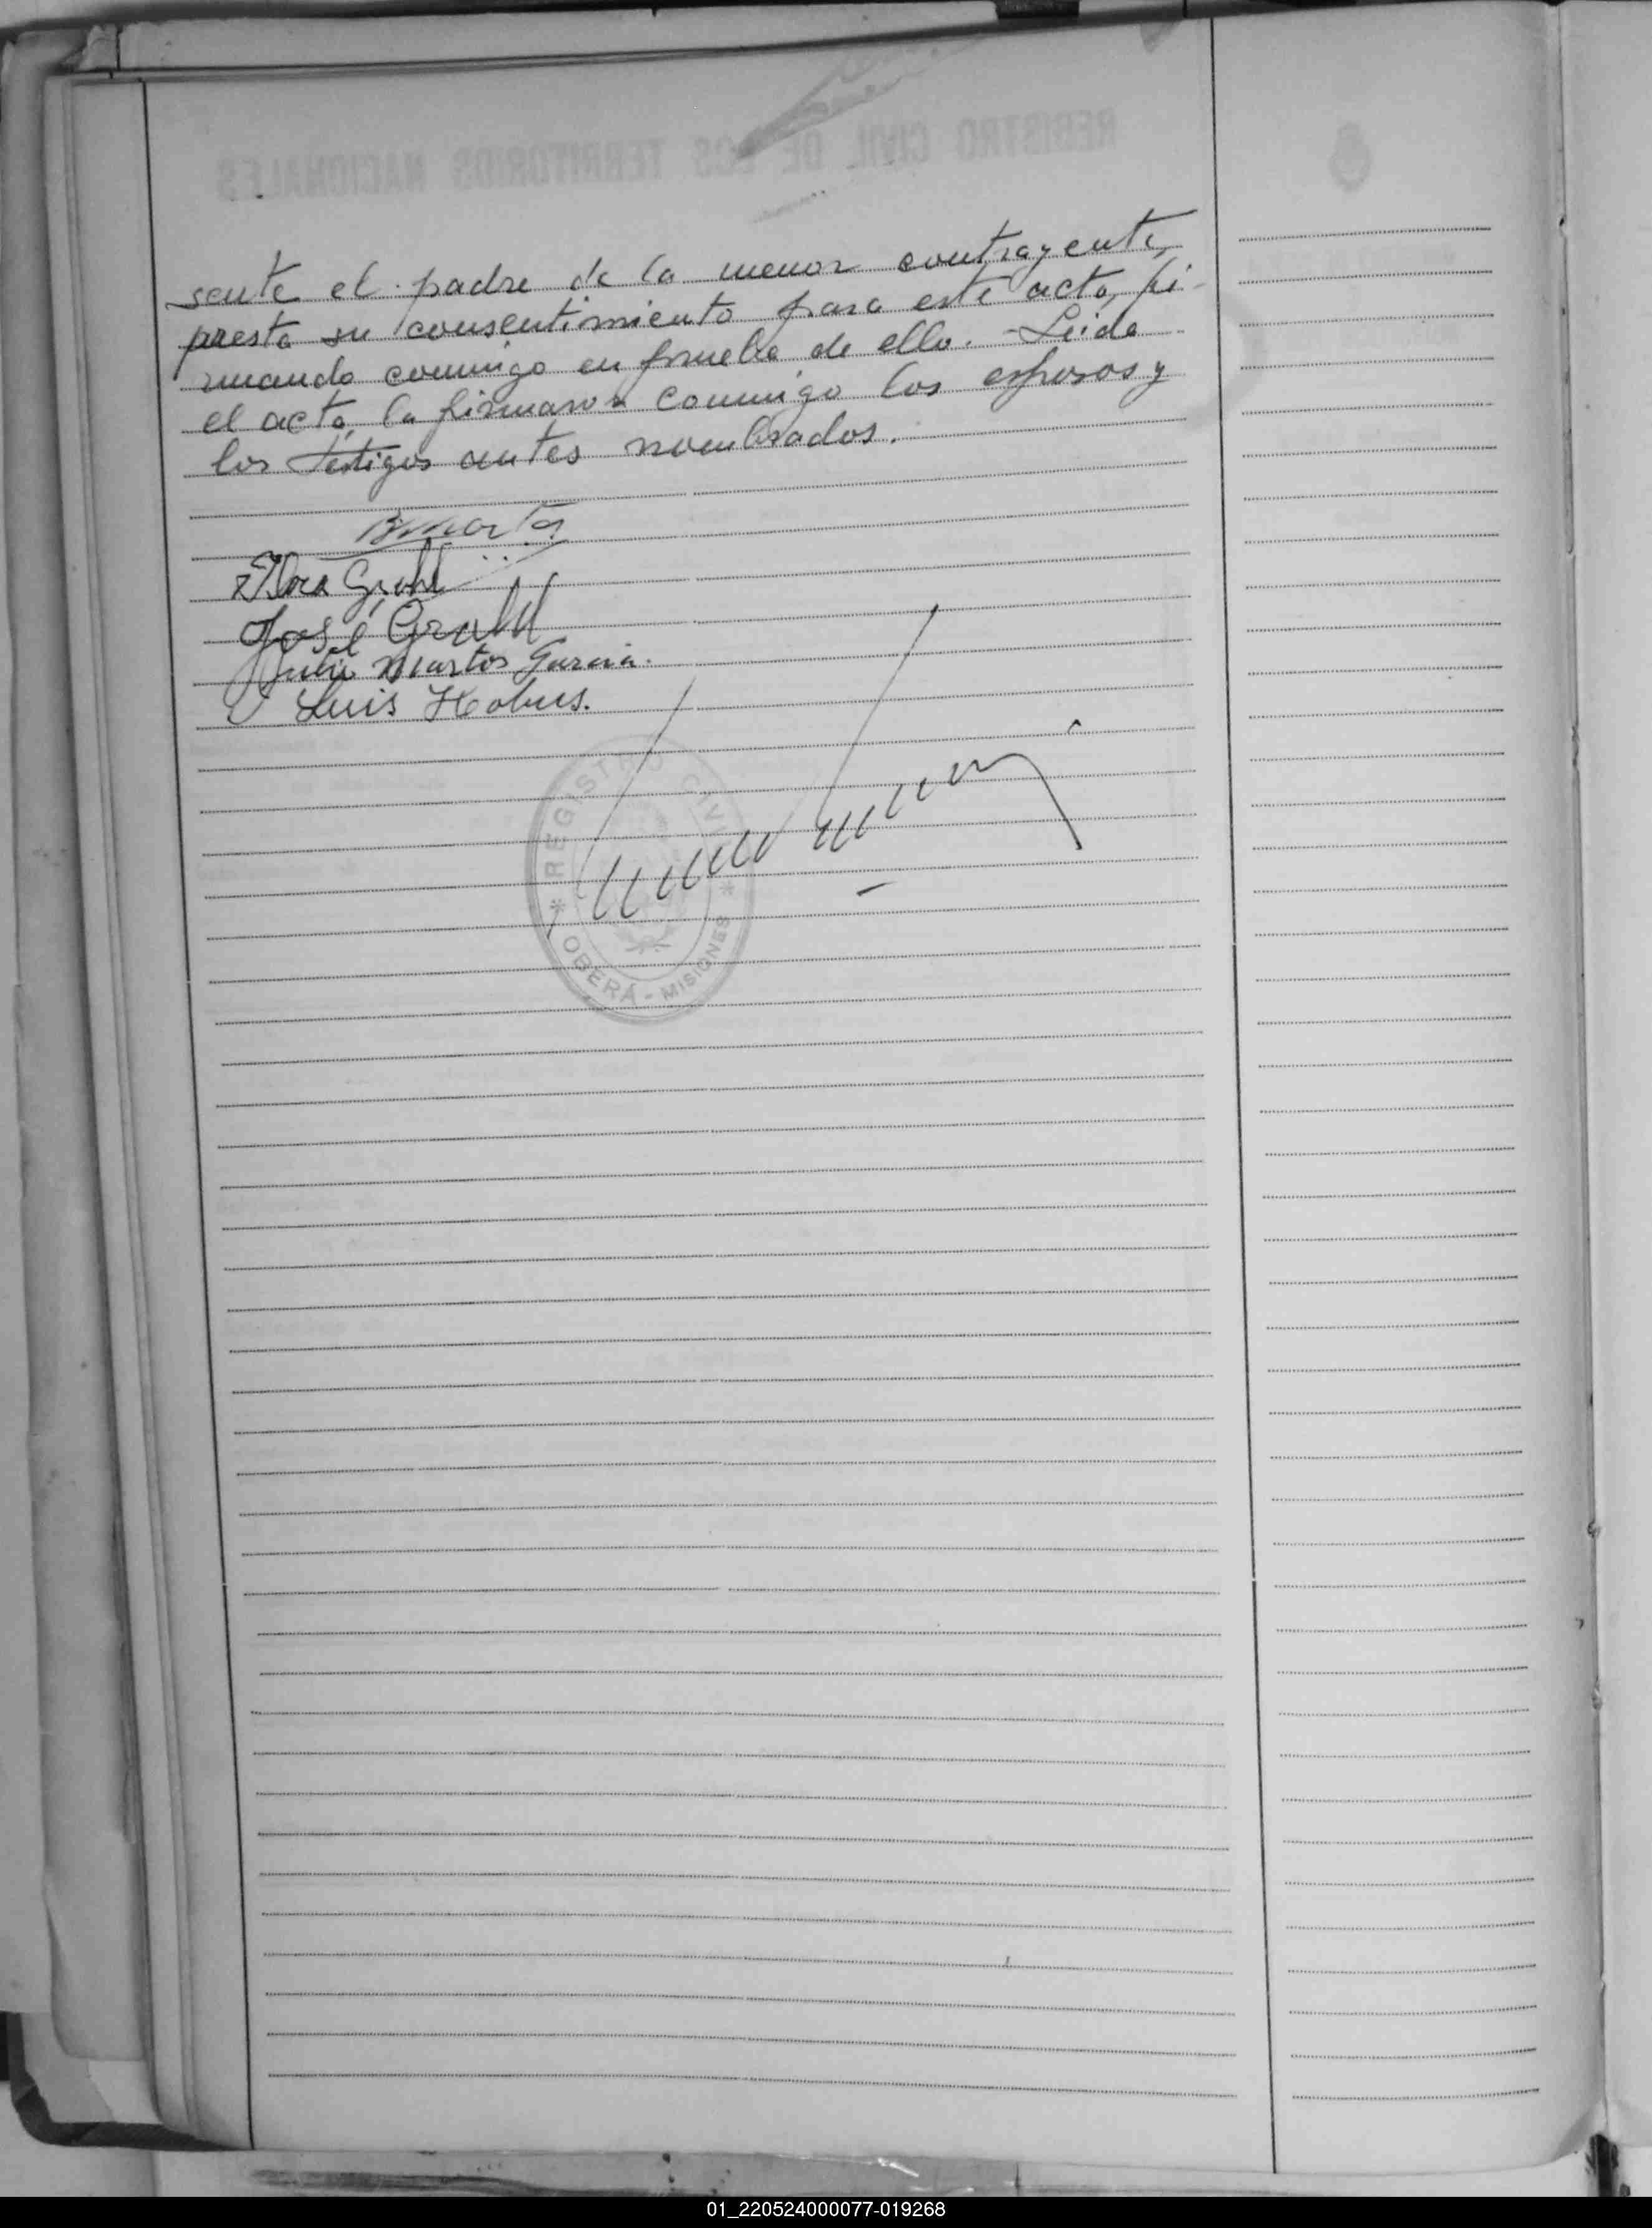 sente el padre de la menor contrayente,
presta su consentimiento para este acto, fi-
rmando conmigo en prueba de ello. - Leida
el acta, la firmaron conmigo los esposos y
los testigos antes nombrados.
Flora Gruhl
José Gruhl
Julio Martos Garcia.
Luis Hobus.
* REGISTRO CIVIL *
OBERÁ - MISIONES
REGISTRO CIVIL DE LOS TERRITORIOS NACIONALES
01_220524000077-019268